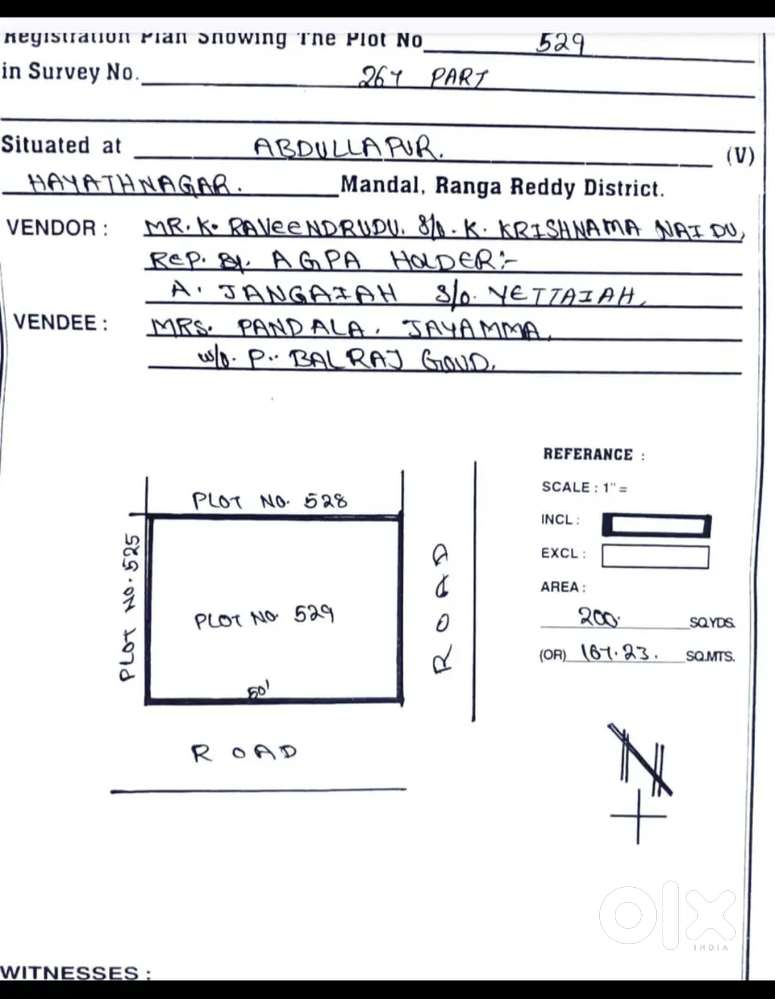 Registration Plan Showing The Plot No 529
in Survey No. 267 PART
Situated at ABDULLAPUR. (V)
HAYATHNAGAR. Mandal, Ranga Reddy District.
VENDOR : MR. K. RAVEENDRUDU. S/O. K. KRISHNAMA NAIDU,
REP. By. AGPA HOLDER:-
A. JANGAIAH S/O. YETTAIAH,
VENDEE : MRS. PANDALA. JAYAMMA,
W/O. P. BALRAJ GOUD.
REFERANCE :
SCALE : 1" =
INCL :
EXCL :
AREA :
200. SQ.YDS.
(OR) 167.23. SQ.MTS.
PLOT NO. 528
PLOT NO. 525
PLOT NO 529
50'
ROAD
ROAD
N
WITNESSES :
olx
INDIA